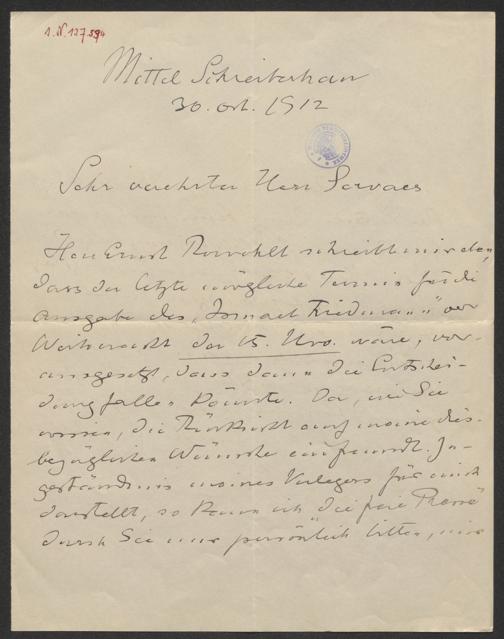 I. N. 127.894
Mittel Schreiberhau
30. Okt. 1912
Sehr verehrter Herr Servaes
Herr Ernst Rowohlt schreibt mir eben,
dass der letzte mögliche Termin für die
Ausgabe des „Ismael Friedmann" vor
Weihnacht der 15. Nov. wäre, vor-
ausgesetzt, dass dann die Entschei-
dung fallen könnte. Da, wie Sie
wissen, die Rücksicht auf meine dies-
bezüglichen Wünsche ein freundl. Zu-
geständnis meines Verlegers für mich
darstellt, so kann ich die „freie Presse"
durch Sie nur persönlich bitten, mir